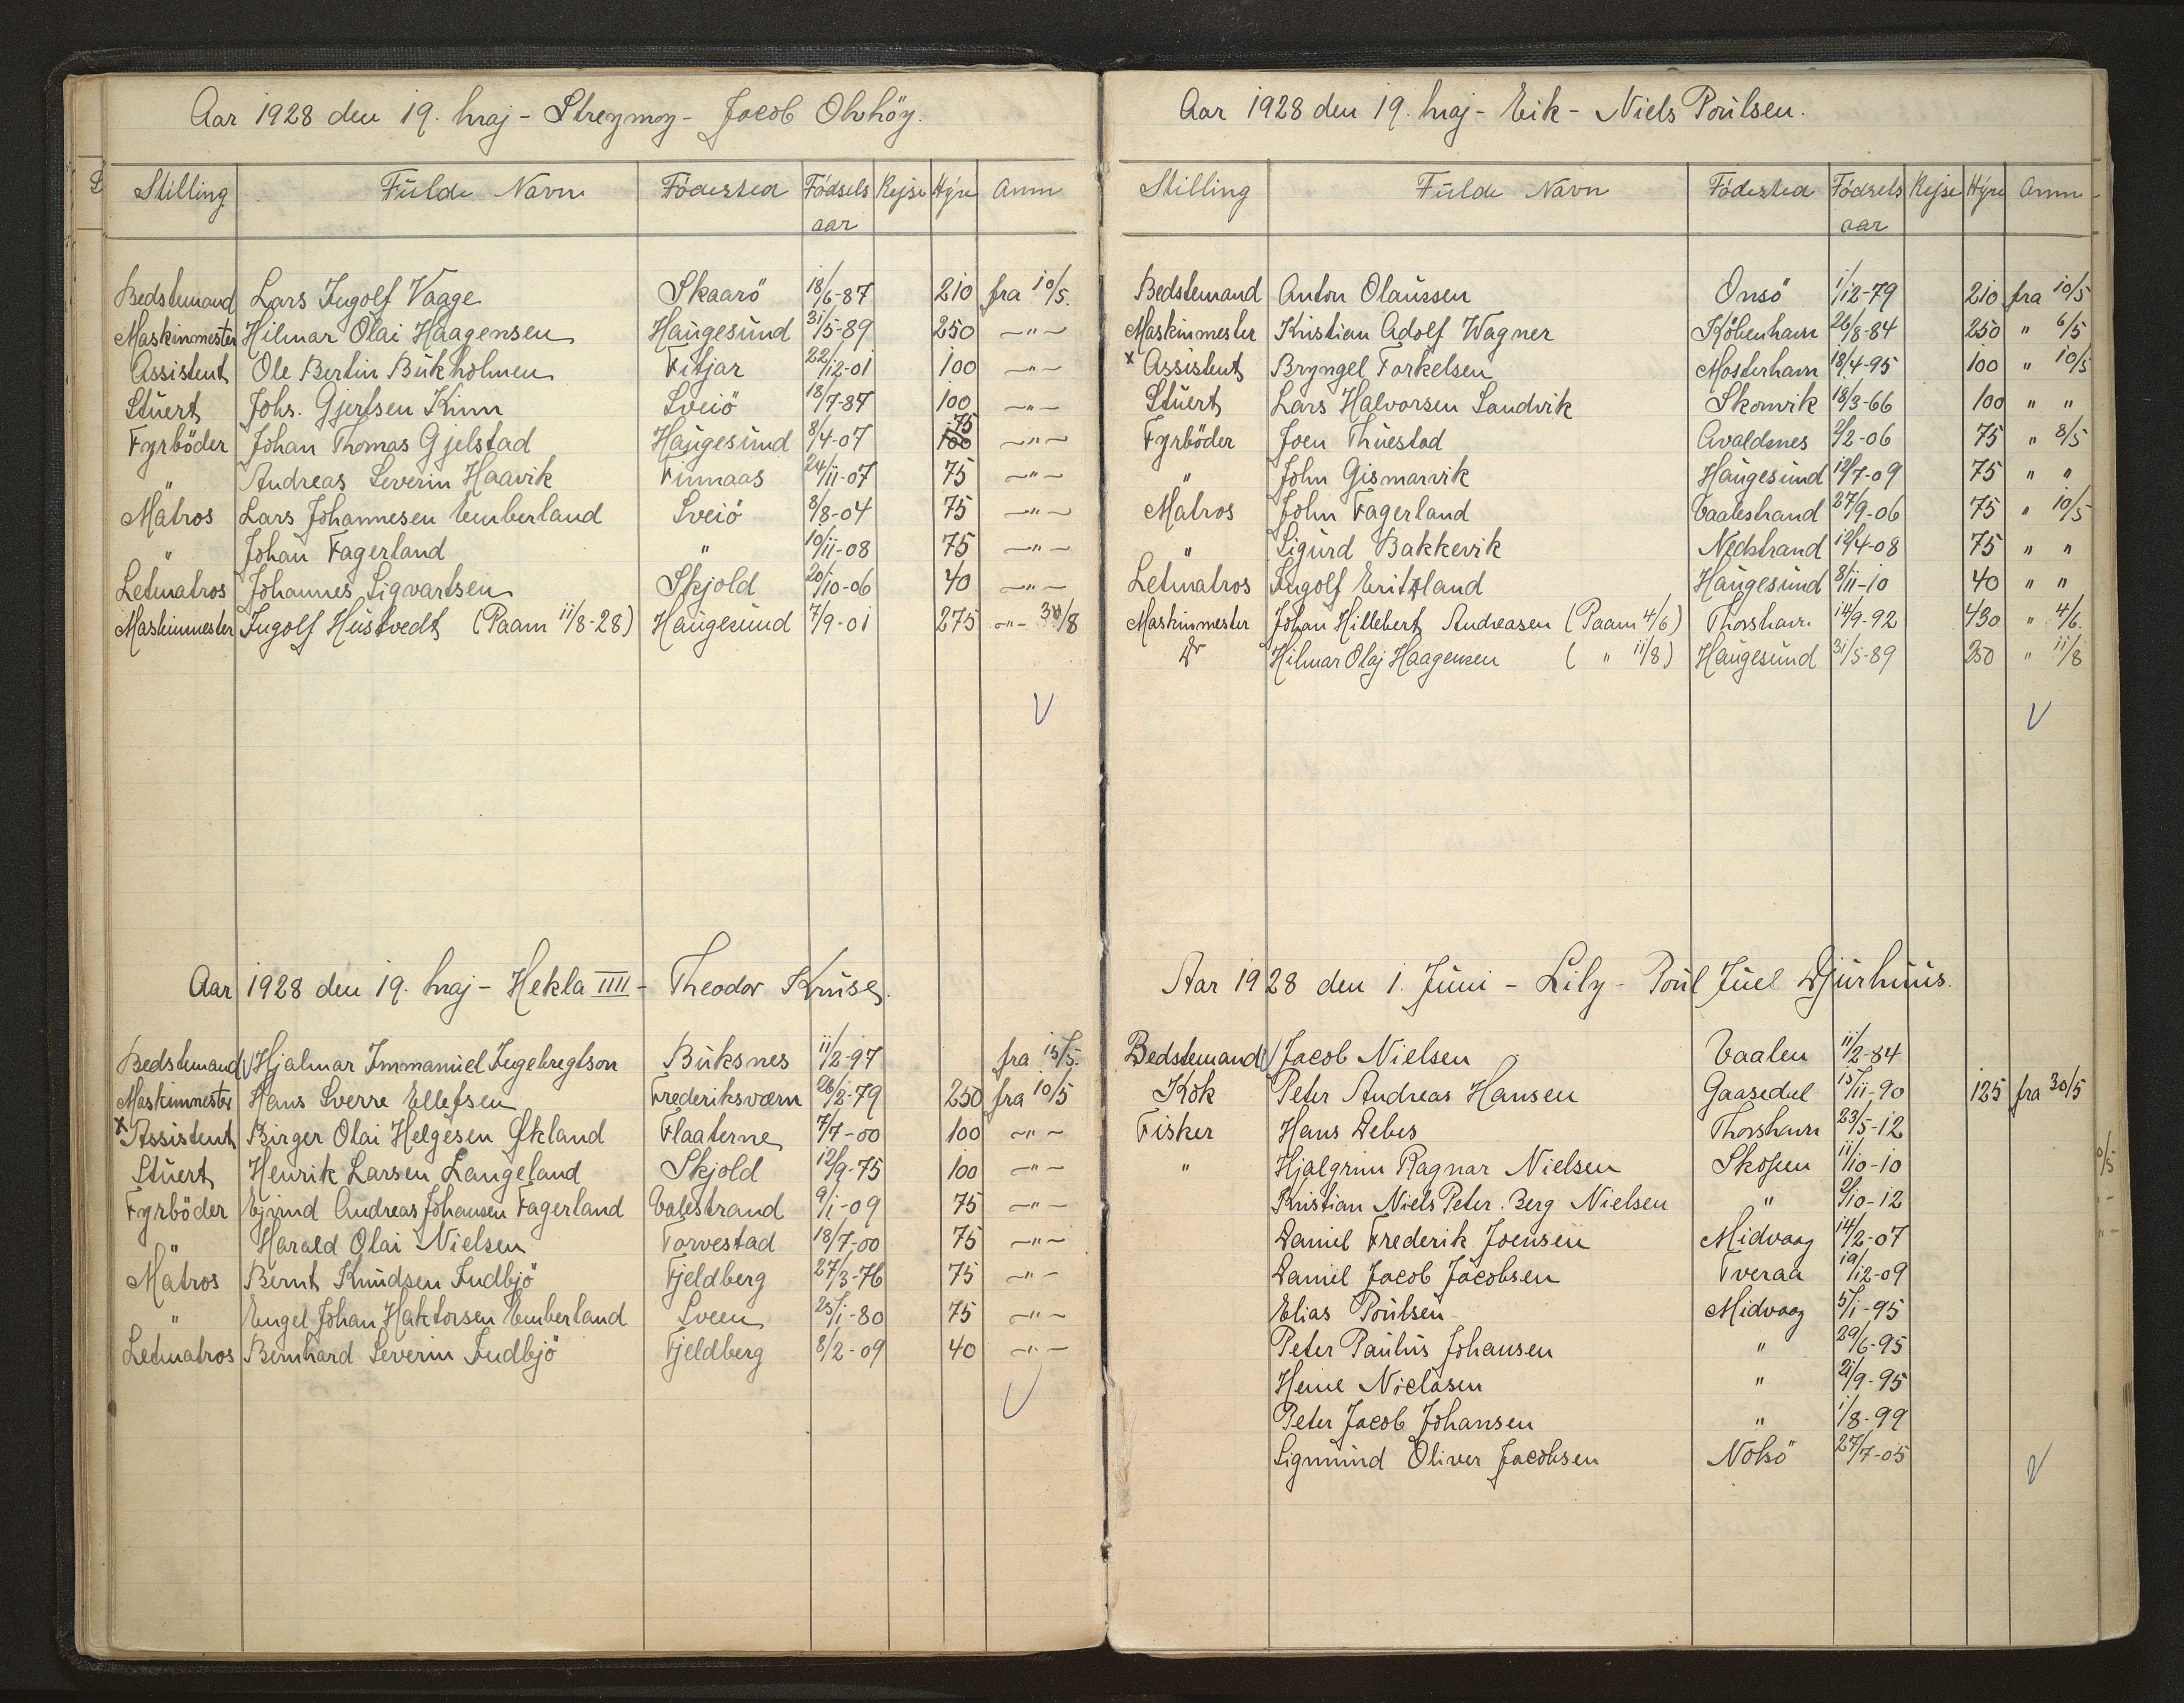 Aar 1928 den 19. Maj - Streymoy - Jacob Olvhöy.
Stilling Fulde Navn Födested Födsels aar Rejse Hyre Anm
Bedstemand Lars Ingolf Vaage Skaarö 18/6-87 210 fra 10/5.
Maskinmester Hilmar Olai Haagensen Haugesund 31/5-89 250 -"-
Assistent Ole Bertin Bukholmen Fitjar 22/12-01 100 -"-
Stuert Johs. Gjertsen Kinn Sveiö 18/7-87 100 -"-
Fyrböder Johan Thomas Gjelstad Haugesund 8/4-07 75 100 -"-
" Andreas Severin Haavik Finnaas 24/11-07 75 -"-
Matros Lars Johannesen Emberland Sveiö 8/8-04 75 -"-
" Johan Fagerland " 10/11-08 75 -"-
Letmatros Johannes Sigvartsen Skjold 20/10-06 40 -"-
Maskinmester Ingolf Hustvedt (Paam 11/8-28) Haugesund 7/9-01 275 -"- /8
Aar 1928 den 19. Maj - Hekla IIII - Theodor Kruse.
Bedstemand Hjalmar Immanuel Ingebregtson Buksnes 11/2-97 fra 15/5.
Maskinmester Hans Sverre Ellefsen Frederiksværn 26/2-79 250 fra 10/5
x Assistent Birger Olai Helgesen Økland Flaaterne 7/7-00 100 -"-
Stuert Henrik Larsen Langeland Skjold 12/9-75 100 -"-
Fyrböder Ejvind Andreas Johansen Fagerland Valestrand 9/1-09 75 -"-
" Harald Olai Nielsen Torvestad 18/7-00 75 -"-
Matros Bernt Knudsen Indbjö Fjeldberg 27/3-76 75 -"-
" Engel Johan Haktorsen Emberland Sveen 25/1-80 75 -"-
Letmatros Bernhard Severin Indbjö Fjeldberg 8/2-09 40 -"-
Aar 1928 den 19. Maj - Eik - Niels Poulsen.
Stilling Fulde Navn Födested Födsels aar Rejse Hyre Anm
Bedstemand Anton Olaussen Onsö 1/12-79 210 fra 10/5
Maskinmester Kristian Adolf Wagner Köbenhavn 26/8-84 250 " 6/5
x Assistent Bryngel Torkelsen Mosterhavn 18/4-95 100 " 10/5
Stuert Lars Halvorsen Sandvik Skonvik 18/3-66 100 " "
Fyrböder Joen Thuestad Avaldsnes 2/2-06 75 " 8/5
" John Gismarvik Haugesund 12/7-09 75 " "
Matros John Fagerland Vaalestrand 27/9-06 75 " 10/5
" Sigurd Bakkevik Nedstrand 12/4-08 75 " "
Letmatros Ingolf Eritzland Haugesund 8/11-10 40 " "
Maskinmester Johan Hillebert Andreasen (Paam 4/6) Thorshavn 14/9-92 430 " 4/6.
Do Hilmar Olaj Haagensen ( " 11/8) Haugesund 31/5-89 250 " 11/8
Aar 1928 den 1. Juni - Lily - Poul Juel Djurhuus.
Bedstemand Jacob Nielsen Vaalen 11/2-84
Kok Peter Andreas Hansen Gaasedal 15/11-90 125 fra 30/5
Fisker Hans Debes Thorshavn 23/5-12
" Hjalgrim Ragnar Nielsen Skopen 11/10-10
Kristian Niels Peter Berg Nielsen " 2/10-12
Daniel Frederik Joensen Midvaag 14/2-07
Daniel Jacob Jacobsen Tveraa 19/12-09
Elias Poulsen Midvaag 5/1-95
Peter Paulus Johansen " 29/6-95
Heine Niclasen " 21/9-95
Peter Jacob Johansen " 1/8-99
Sigmund Oliver Jacobsen Nolsö 27/7-05